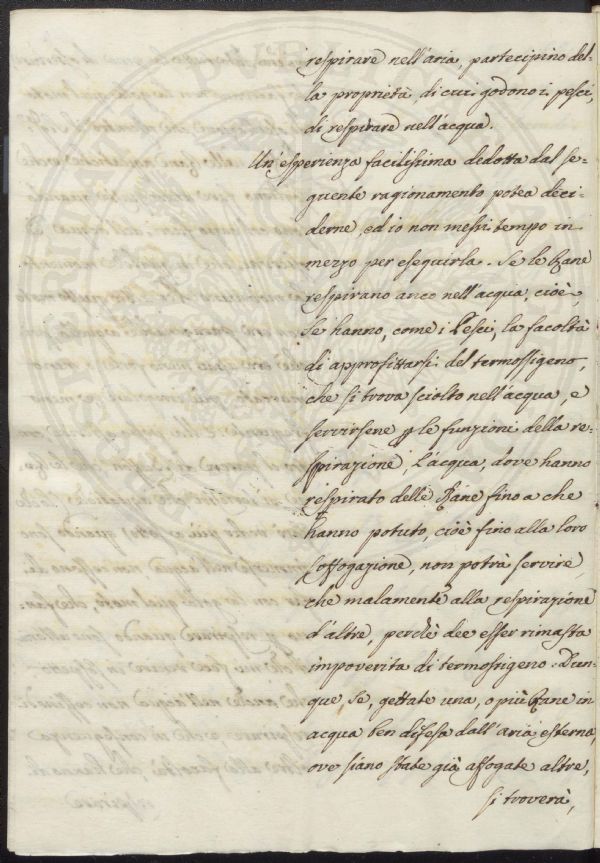 respirare nell'aria, partecipino del-
la proprietà, di cui godono i pesci,
di respirare nell'acqua.
Un'esperienza facilissima dedotta dal se-
guente ragionamento potea deci-
derne, ed io non messi tempo in
mezzo per eseguirla. Se le Rane
respirano anco nell'acqua, cioè,
se hanno, come i Pesci, la facoltà
di approfittarsi del termossigeno,
che si trova sciolto nell'acqua, e
servirsene p le funzioni della re-
spirazione, l'acqua, dove hanno
respirato delle Rane fino a che
hanno potuto, cioè fino alla loro
soffogazione, non potrà servire,
che malamente alla respirazione
d'altre, perchè dee esser rimasta
impoverita di termossigeno. Dun-
que se, gettate una, o più Rane in
acqua ben difesa dall'aria esterna,
ove siano state già affogate altre,
si troverà,